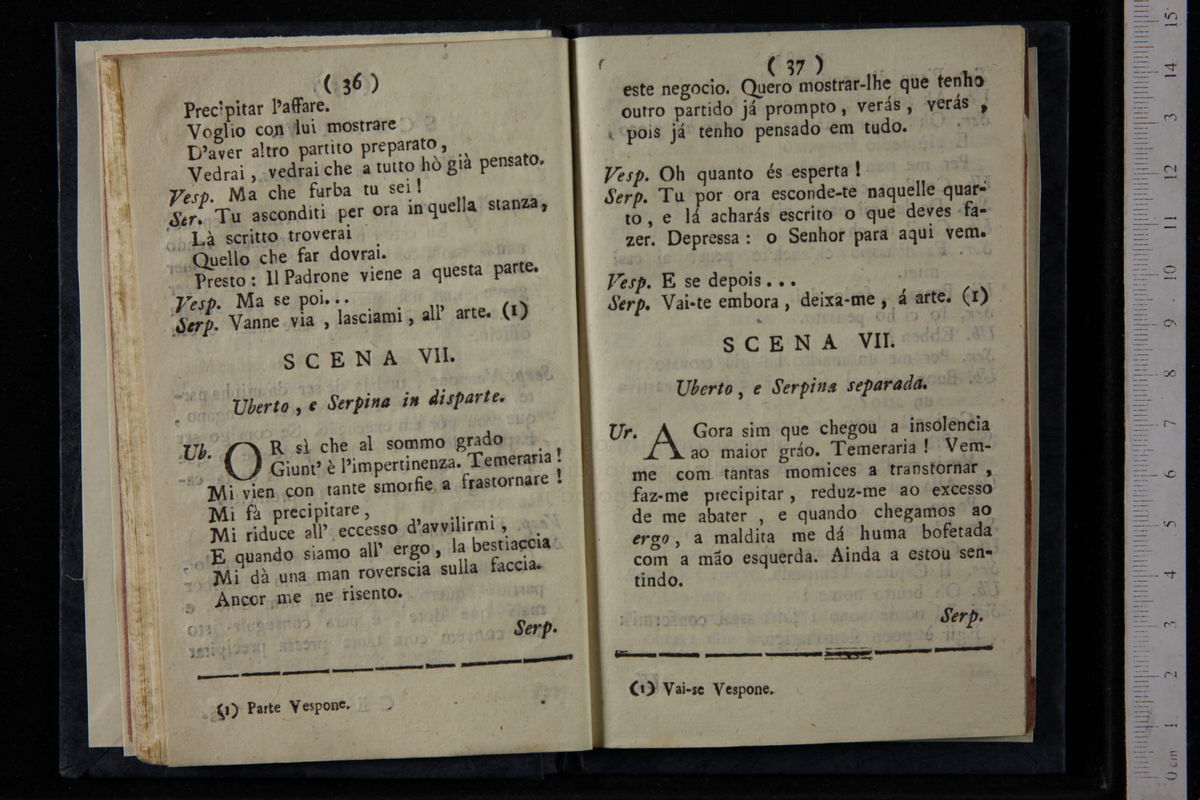 ( 36 )
Precipitar l'affare.
Voglio con lui mostrare
D'aver altro partito preparato,
Vedrai, vedrai che a tutto hò già pensato.
Vesp. Ma che furba tu sei!
Ser. Tu asconditi per ora in quella stanza,
Là scritto troverai
Quello che far dovrai.
Presto: Il Padrone viene a questa parte.
Vesp. Ma se poi...
Serp. Vanne via, lasciami, all' arte. (1)
SCENA VII.
Uberto, e Serpina in disparte.
Ub. OR sì che al sommo grado
Giunt' è l'impertinenza. Temeraria!
Mi vien con tante smorfie a frastornare!
Mi fà precipitare,
Mi riduce all' eccesso d'avvilirmi,
E quando siamo all' ergo, la bestiaccia
Mi dà una man roverscia sulla faccia.
Ancor me ne risento.
Serp.
(1) Parte Vespone.
( 37 )
este negocio. Quero mostrar-lhe que tenho
outro partido já prompto, verás, verás,
pois já tenho pensado em tudo.
Vesp. Oh quanto és esperta!
Serp. Tu por ora esconde-te naquelle quar-
to, e lá acharás escrito o que deves fa-
zer. Depressa: o Senhor para aqui vem.
Vesp. E se depois...
Serp. Vai-te embora, deixa-me, á arte. (1)
SCENA VII.
Uberto, e Serpina separada.
Ur. AGora sim que chegou a insolencia
ao maior gráo. Temeraria! Vem-
me com tantas momices a transtornar,
faz-me precipitar, reduz-me ao excesso
de me abater, e quando chegamos ao
ergo, a maldita me dá huma bofetada
com a mão esquerda. Ainda a estou sen-
tindo.
Serp.
(1) Vai-se Vespone.
0 cm 1 2 3 4 5 6 7 8 9 10 11 12 3 14 15